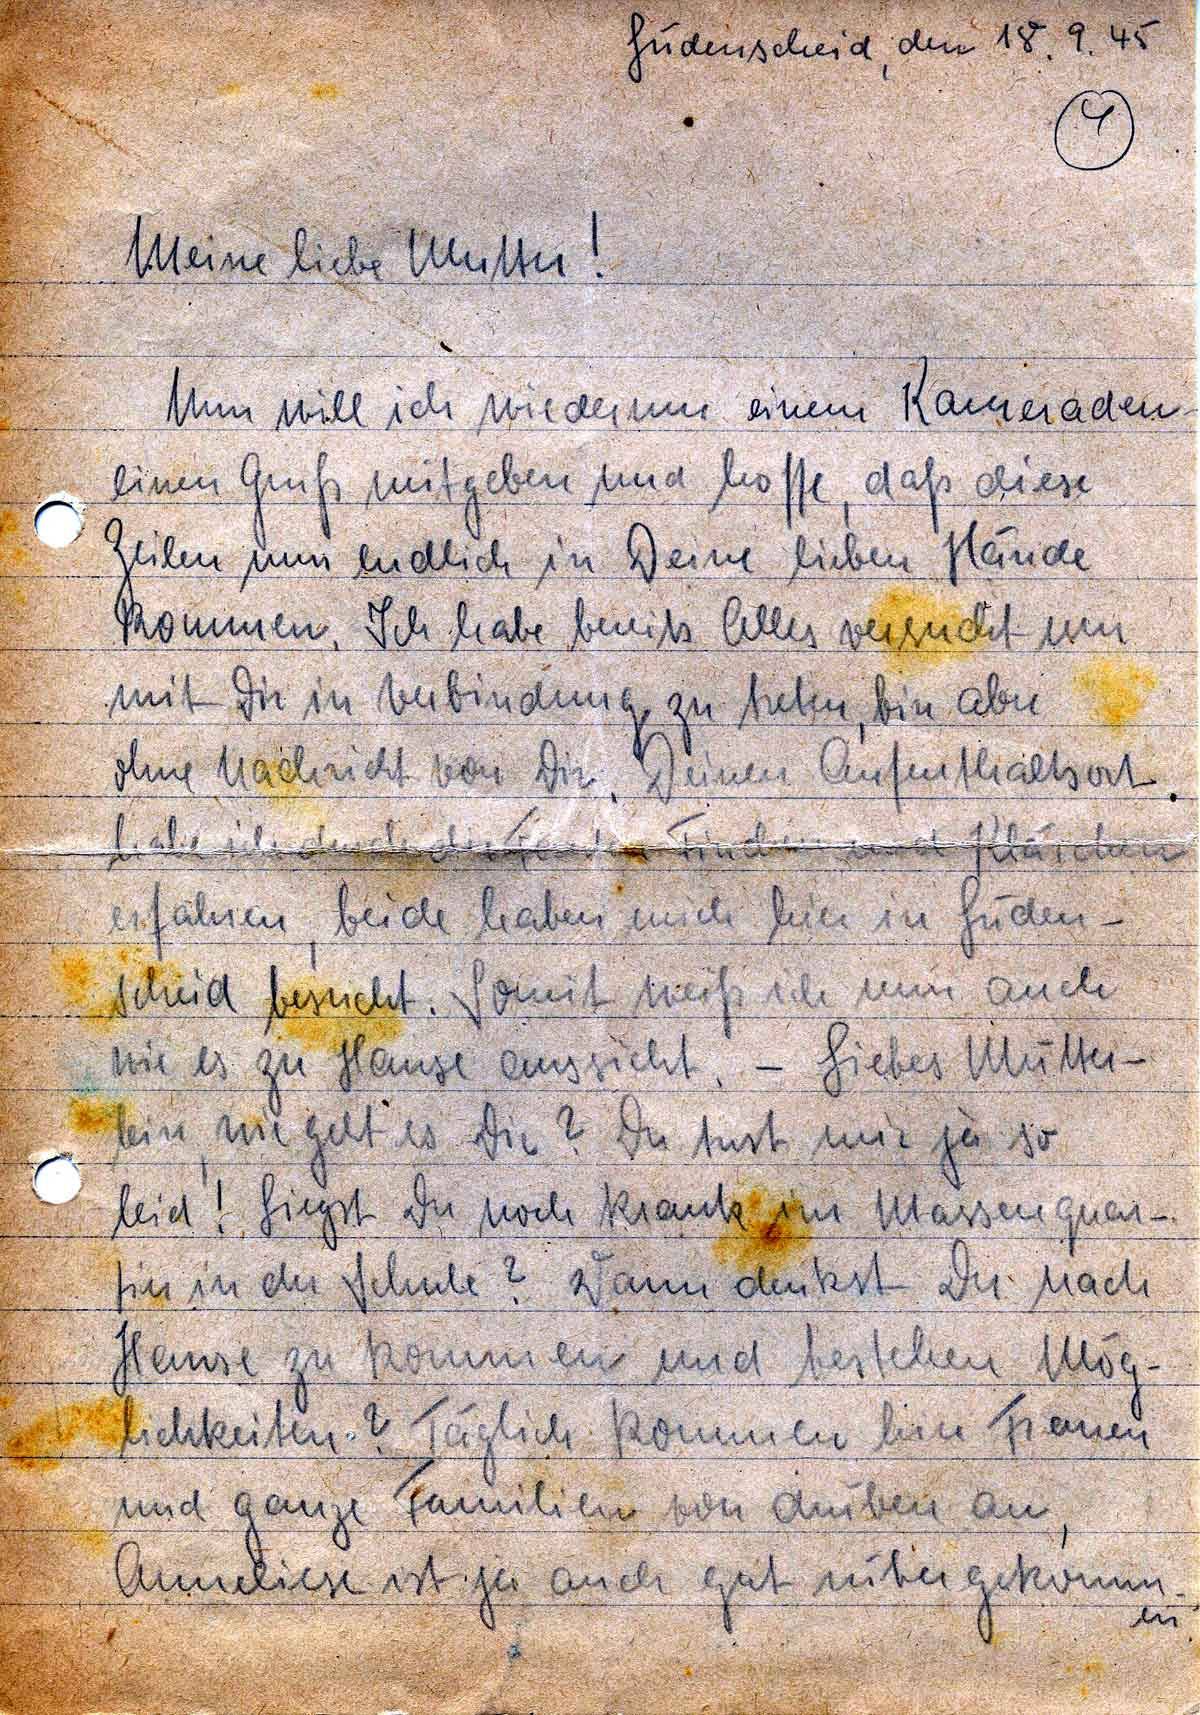 Lüdenscheid, den 18. 9. 45
4
Meine liebe Mutter!
Nun will ich wiederum einem Kameraden
einen Gruß mitgeben und hoffe, daß diese
Zeilen nun endlich in Deine lieben Hände
kommen. Ich habe bereits Alles versucht um
mit Dir in Verbindung zu treten, bin aber
ohne Nachricht von Dir. Deinen Aufenthaltsort
habe ich durch und Klärchen
erfahren, beide haben mich hier in Lüden-
scheid besucht. Somit weiß ich nun auch
wie es zu Hause aussieht. – Liebes Mutter-
lein, wie geht es Dir? Du tust mir ja so
leid! Liegst Du noch krank im Massenquar-
tier in der Schule? Wann denkst Du nach
Hause zu kommen und bestehen Mög-
lichkeiten? Täglich kommen hier Frauen
und ganze Familien von drüben an,
Anneliese ist ja auch gut rübergekomm-
en